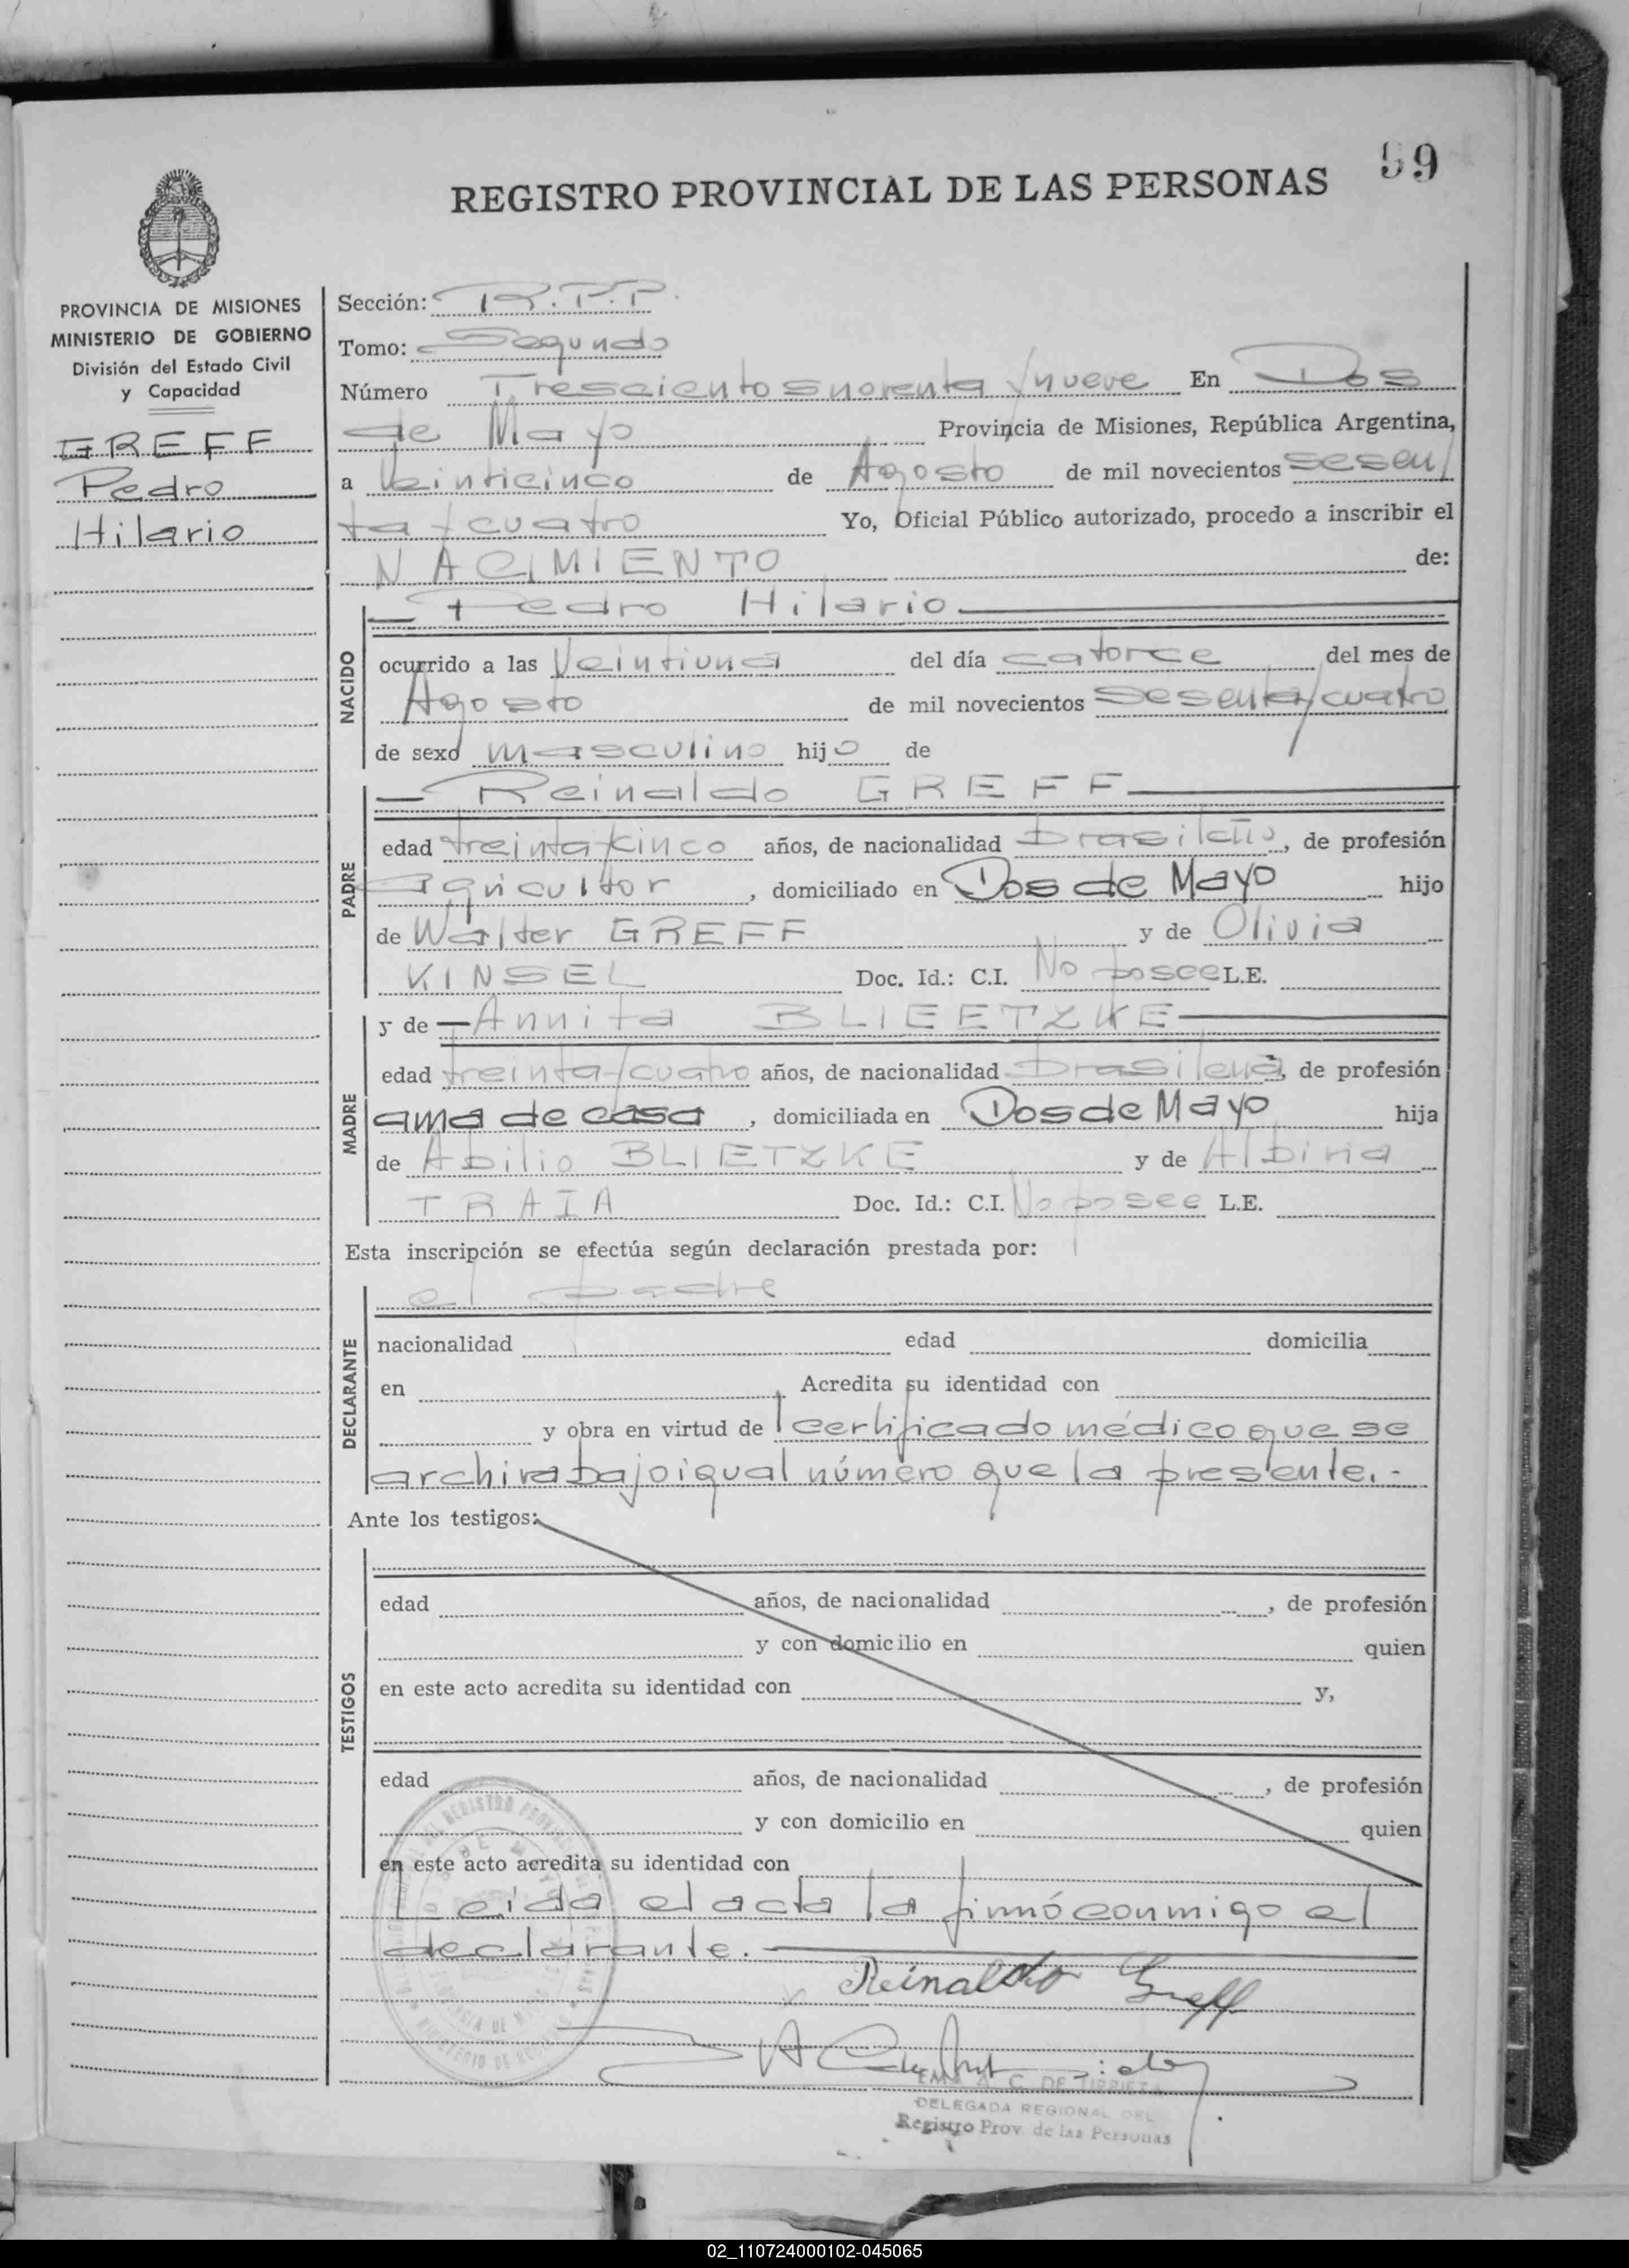 59
REGISTRO PROVINCIAL DE LAS PERSONAS
PROVINCIA DE MISIONES
MINISTERIO DE GOBIERNO
División del Estado Civil
y Capacidad
GREFF
Pedro
Hilario
Sección: R.P.P.
Tomo: Segundo
Número Trescientos noventa y nueve En Dos
de Mayo Provincia de Misiones, República Argentina,
a Veinticinco de Agosto de mil novecientos sesen
ta y cuatro Yo, Oficial Público autorizado, procedo a inscribir el
NACIMIENTO de:
NACIDO
Pedro Hilario
ocurrido a las Veintiuna del día catorce del mes de
Agosto de mil novecientos sesenta y cuatro
de sexo masculino hijo de
PADRE
Reinaldo GREFF
edad treinta y cinco años, de nacionalidad brasileño, de profesión
agricultor, domiciliado en Dos de Mayo hijo
de Walter GREFF y de Olivia
KINSEL Doc. Id.: C.I. No posee L.E.
MADRE
y de Annita BLIEETZKE
edad treinta y cuatro años, de nacionalidad brasileña, de profesión
ama de casa, domiciliada en Dos de Mayo hija
de Abilio BLIETZKE y de Albina
TRAIA Doc. Id.: C.I. No posee L.E.
Esta inscripción se efectúa según declaración prestada por:
DECLARANTE
el padre
nacionalidad edad domicilia
en Acredita su identidad con
y obra en virtud de certificado médico que se
archiva bajo igual número que la presente.-
Ante los testigos:
TESTIGOS
edad años, de nacionalidad , de profesión
y con domicilio en quien
en este acto acredita su identidad con y,
edad años, de nacionalidad , de profesión
y con domicilio en quien
en este acto acredita su identidad con
Leida el acta la firmó conmigo el
declarante.
Reinaldo Greff
DELEGADA REGIONAL DEL
Registro Prov. de las Personas
02_110724000102-045065